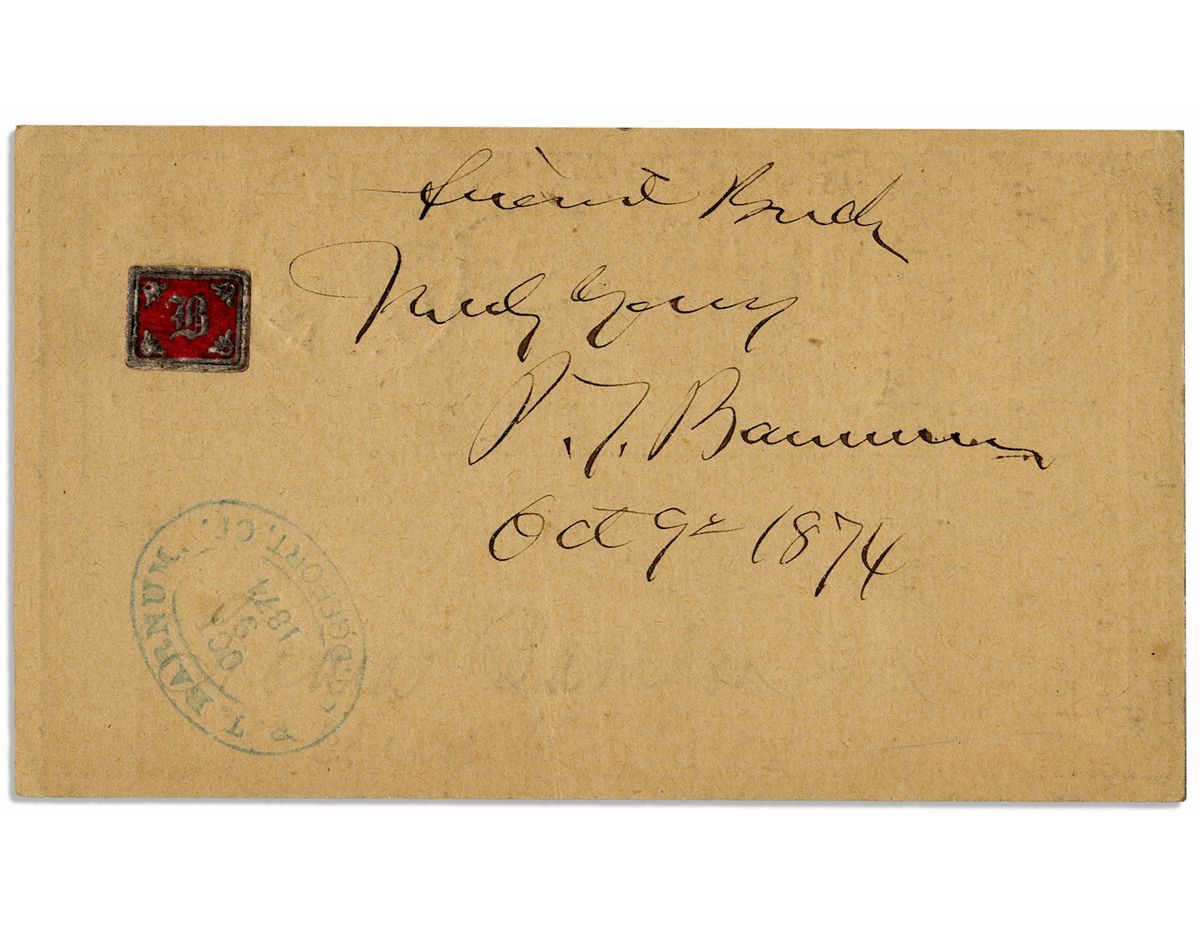 friend
B
Truly Yours
P. T. Barnum
Oct 9th 1874
P. T. BARNUM.
BRIDGEPORT, CT.
OCT
9
1874